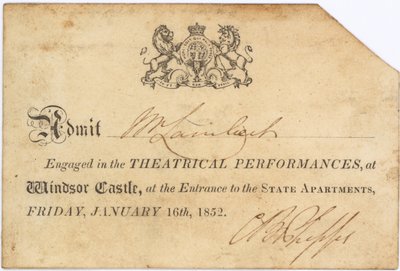 Admit Mr Lambert
Engaged in the THEATRICAL PERFORMANCES, at
Windsor Castle, at the Entrance to the STATE APARTMENTS,
FRIDAY, JANUARY 16th, 1852.
C B Phipps